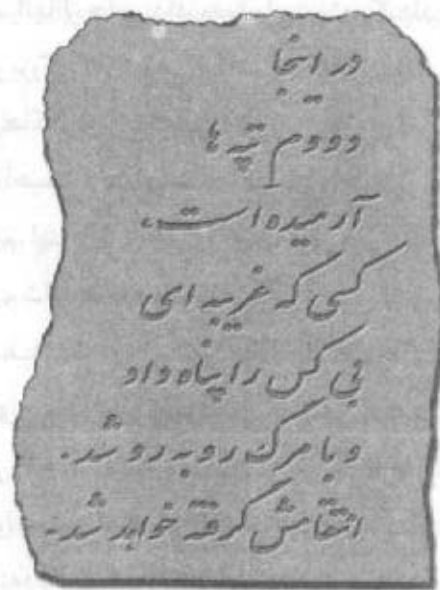 در اینجا
دووم تپه‌ها
آرمیده است،
کسی که غریبه‌ای
بی کس را پناه داد
و با مرگ روبه‌رو شد.
انتقامش گرفته خواهد شد.